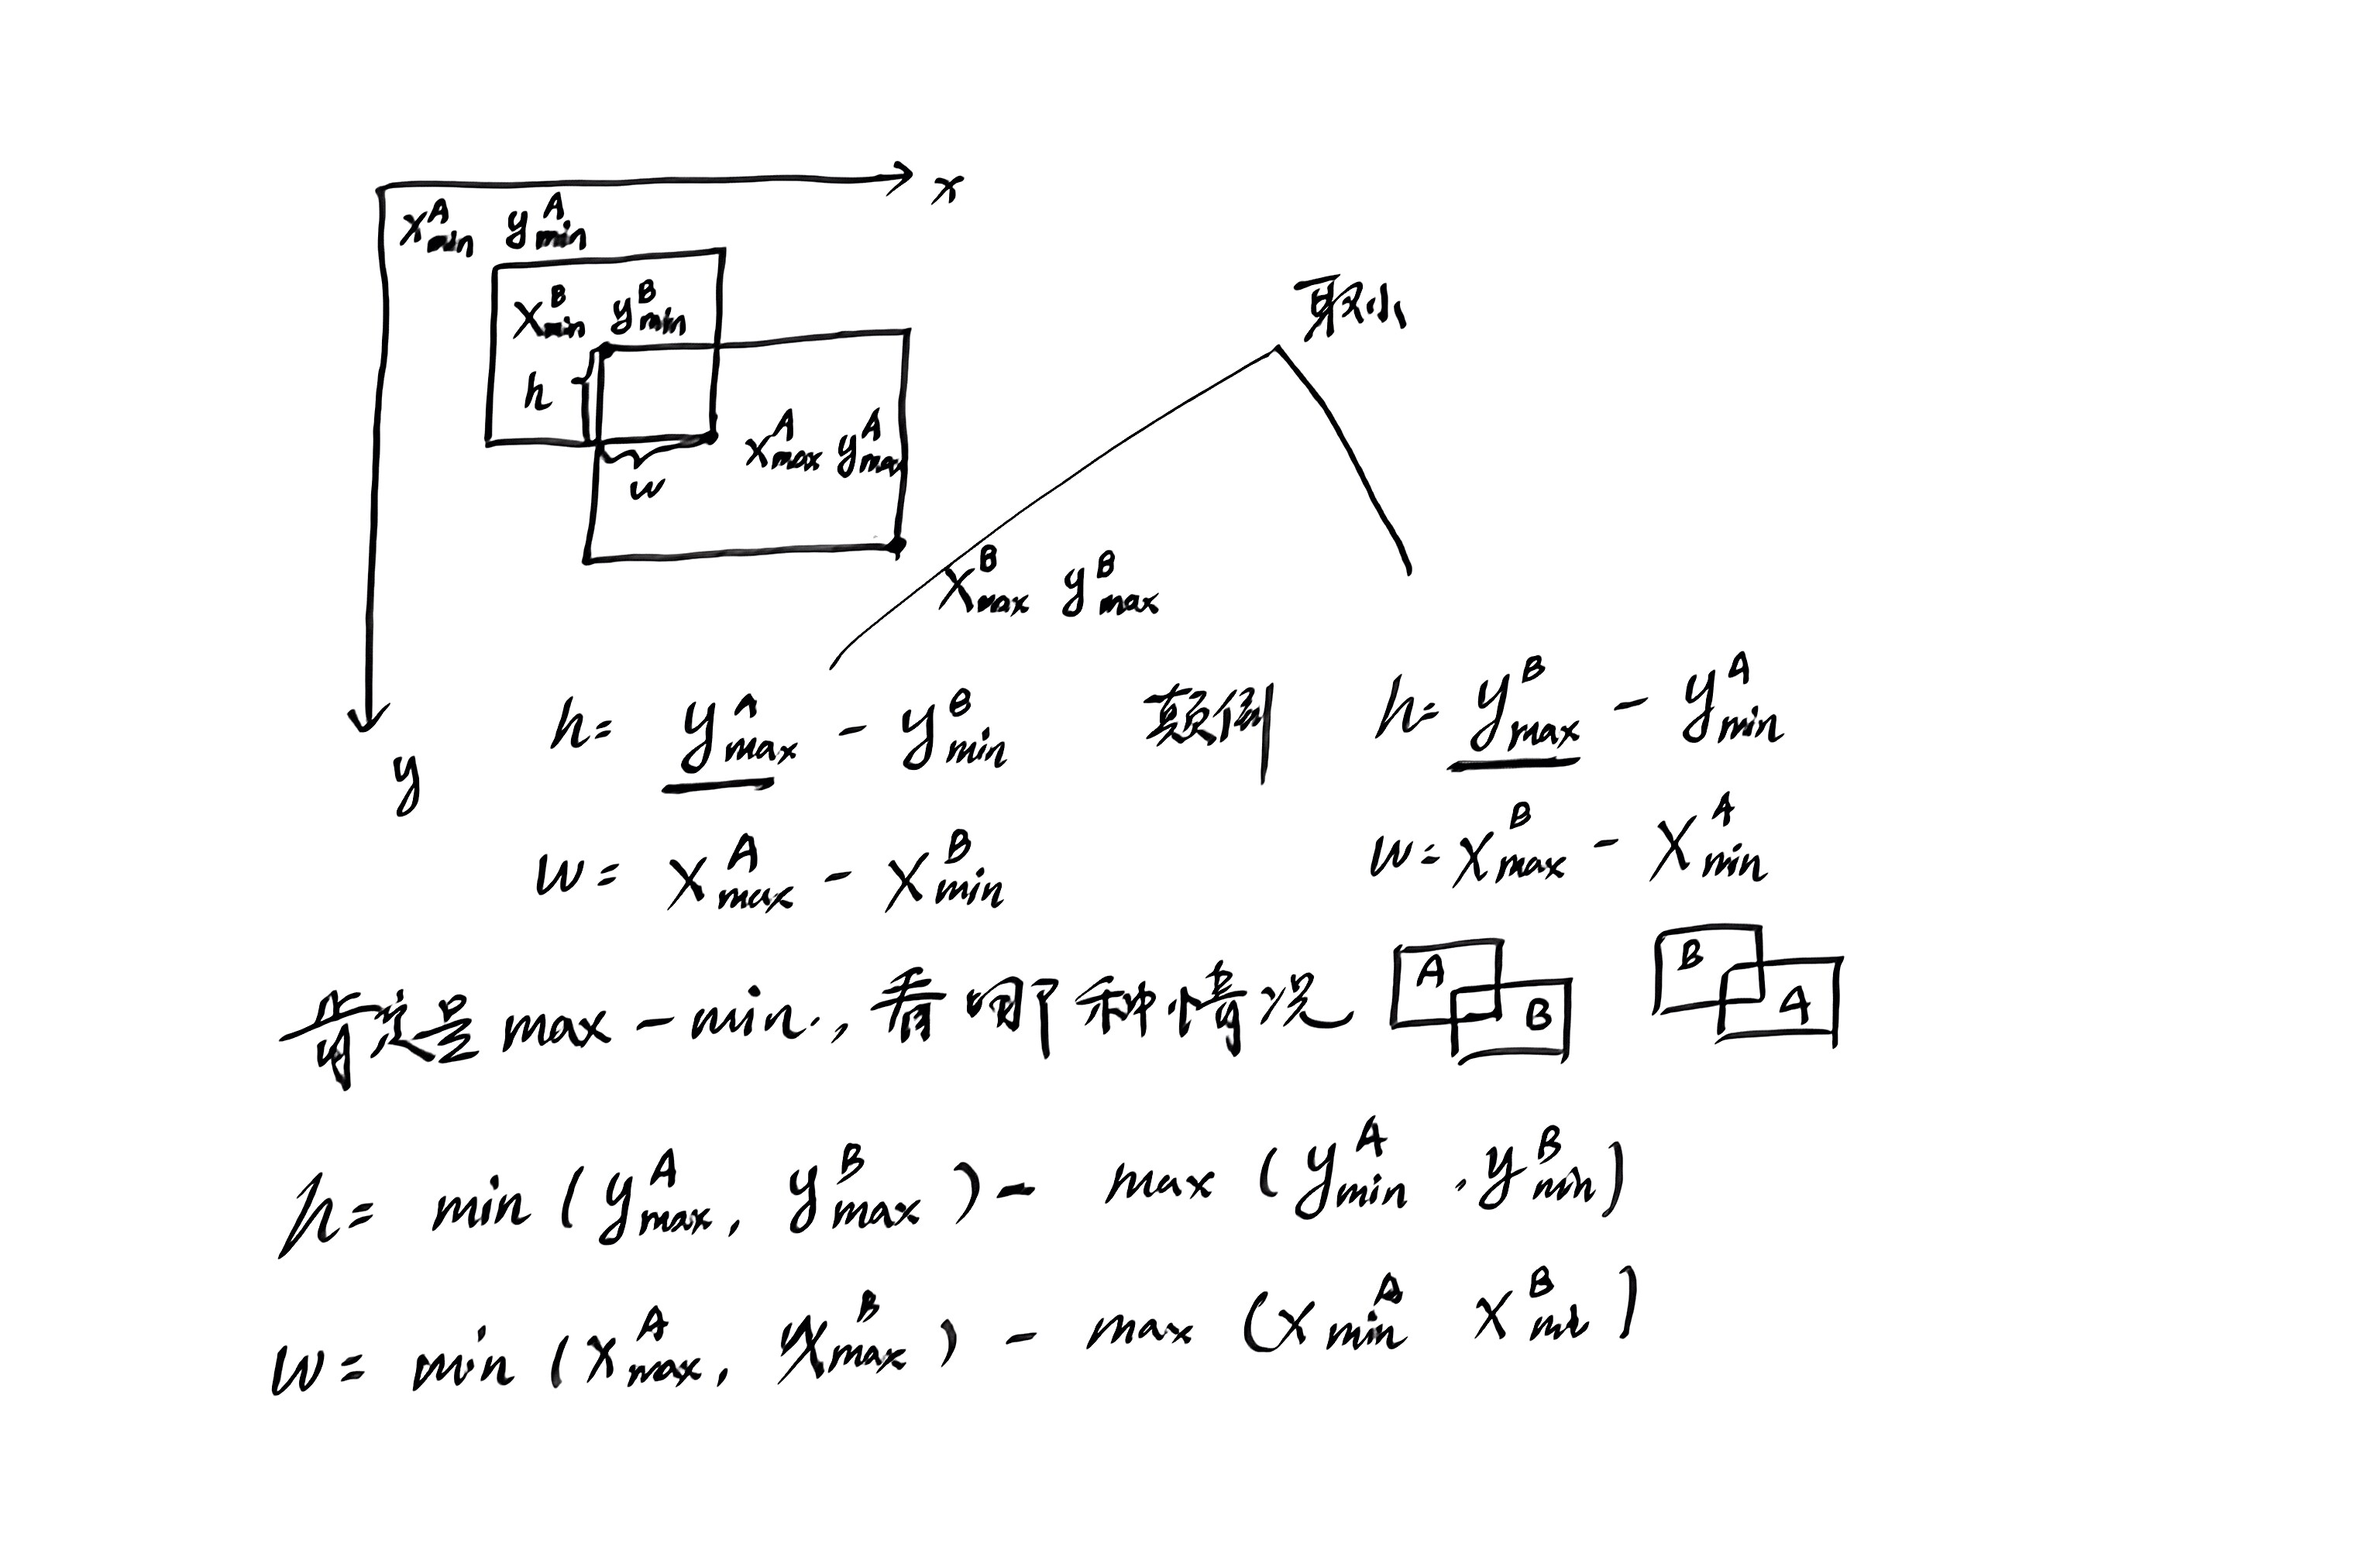 x
x^A_min y^A_min
x^B_min y^B_min
取小
h
x^A_max y^A_max
w
x^B_max y^B_max
y
h= y^A_max - y^B_min 类似 h= y^B_max - y^A_min
w= x^A_max - x^B_min w= x^B_max - x^A_min
是 max - min, 有两种情况 A B B A
h= min (y^A_max, y^B_max) - max (y^A_min, y^B_min)
w= min (x^A_max, x^B_max) - max (x^A_min x^B_min)